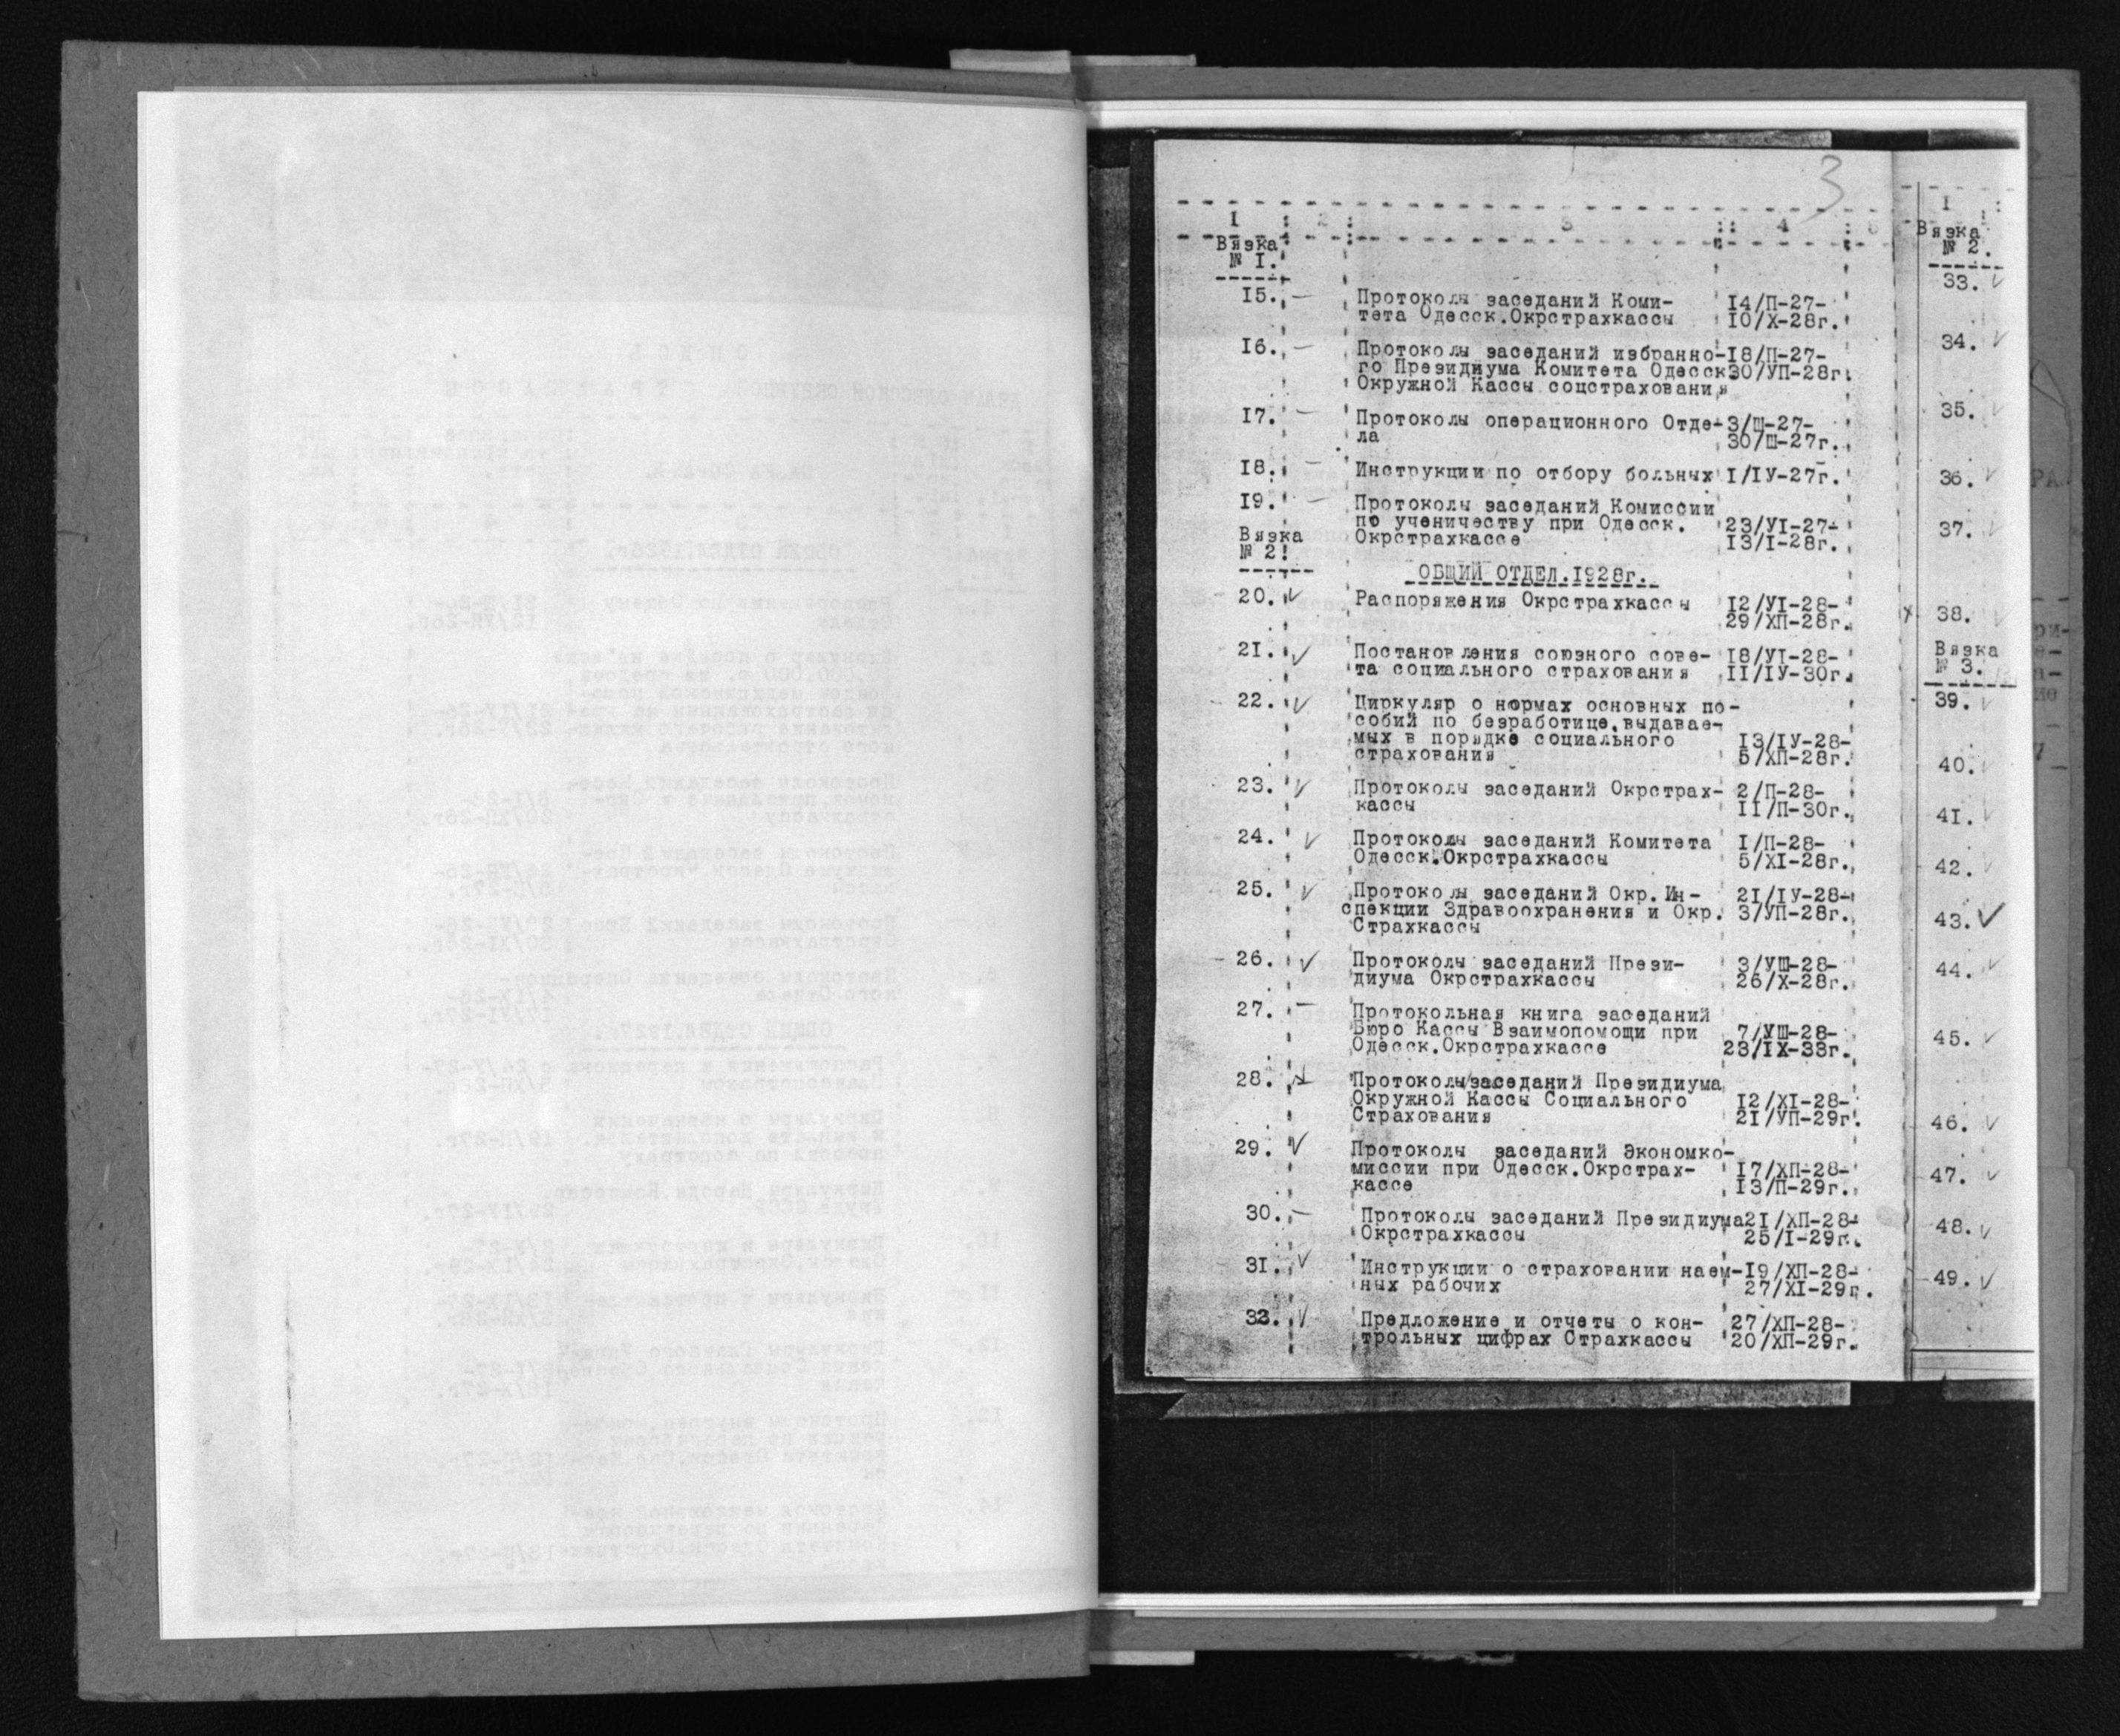 3
I : 2 : 3 : 4 :
Вязка
№ I.
I5. — Протоколы заседаний Коми- I4/П-27-
тета Одесск.Окрстрахкассы IO/X-28г.
I6. — Протоколы заседаний избранно- I8/П-27-
го Президиума Комитета Одесск 30/УП-28г.
Окружной Кассы соцстрахования
I7. — Протоколы операционного Отде- 3/Ш-27-
ла 30/Ш-27г.
I8. — Инструкции по отбору больных I/IУ-27г.
I9. — Протоколы заседаний Комиссии
по ученичеству при Одесск. 23/УI-27-
Окрстрахкассе I3/I-28г.
Вязка
№ 2!
ОБЩИЙ ОТДЕЛ.I928г.
20. ✓ Распоряжения Окрстрахкассы I2/УI-28-
29/ХП-28г.
21. ✓ Постановления союзного сове- I8/УI-28-
та социального страхования II/IУ-30г.
22. ✓ Циркуляр о нормах основных по-
собий по безработице,выдавае-
мых в порядке социального I3/IУ-28-
страхования 5/ХП-28г.
23. ✓ Протоколы заседаний Окрстрах- 2/П-28-
кассы II/П-30г.
24. ✓ Протоколы заседаний Комитета I/П-28-
Одесск.Окрстрахкассы 5/XI-28г.
25. ✓ Протоколы заседаний Окр. Ин- 2I/IУ-28-
спекции Здравоохранения и Окр. 3/УП-28г.
Страхкассы
26. ✓ Протоколы заседаний Прези- 3/УШ-28-
диума Окрстрахкассы 26/X-28г.
27. — Протокольная книга заседаний
Бюро Кассы Взаимопомощи при 7/УШ-28-
Одесск.Окрстрахкассе 23/IX-33г.
28. Протоколы заседаний Президиума
Окружной Кассы Социального I2/XI-28-
Страхования 2I/УП-29г.
29. ✓ Протоколы заседаний Экономко-
миссии при Одесск.Окрстрах- I7/ХП-28-
кассе I3/П-29г.
30. — Протоколы заседаний Президиума 2I/ХП-28-
Окрстрахкассы 25/I-29г.
3I. ✓ Инструкции о страховании наем- I9/ХП-28-
ных рабочих 27/XI-29г.
32. ✓ Предложение и отчеты о кон- 27/ХП-28-
трольных цифрах Страхкассы 20/ХП-29г.
I :
Вязка
№ 2.
33. ✓
34. ✓
35. ✓
36. ✓
37. ✓
38. ✓
Вязка
№ 3.
39. ✓
40. ✓
4I. ✓
42. ✓
43. ✓
44. ✓
45. ✓
46. ✓
47. ✓
48. ✓
49. ✓